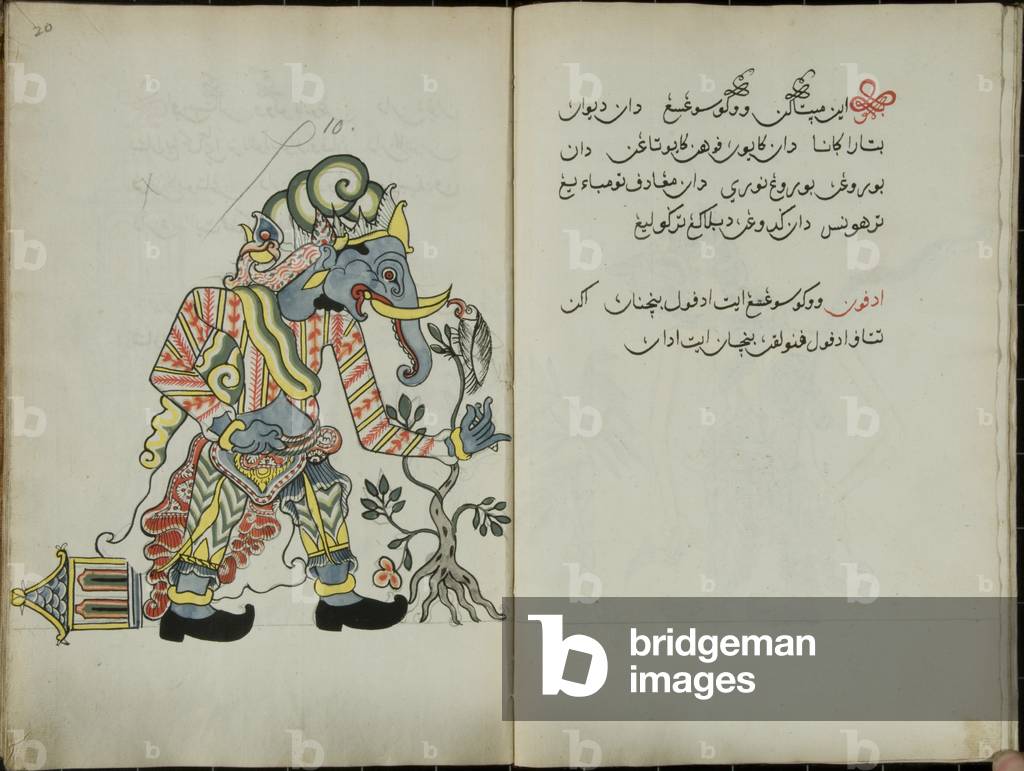 20
10.
اين مپتاكن ووكو سوڠسڠ دان ديوان
بتارا كانا دان كايون فوهن كايو تاڠن دان
بوروڠن بوروڠ نوري دان مڠادف تومباء يڠ
ترهونس دان كدوڠن دبلاكڠ تركوليڠ
ادفون ووكو سوڠسڠ ايت ادفول بنچنان اكن
تتاف ادفول فنولق بنچان ايت ادان
bridgeman
images